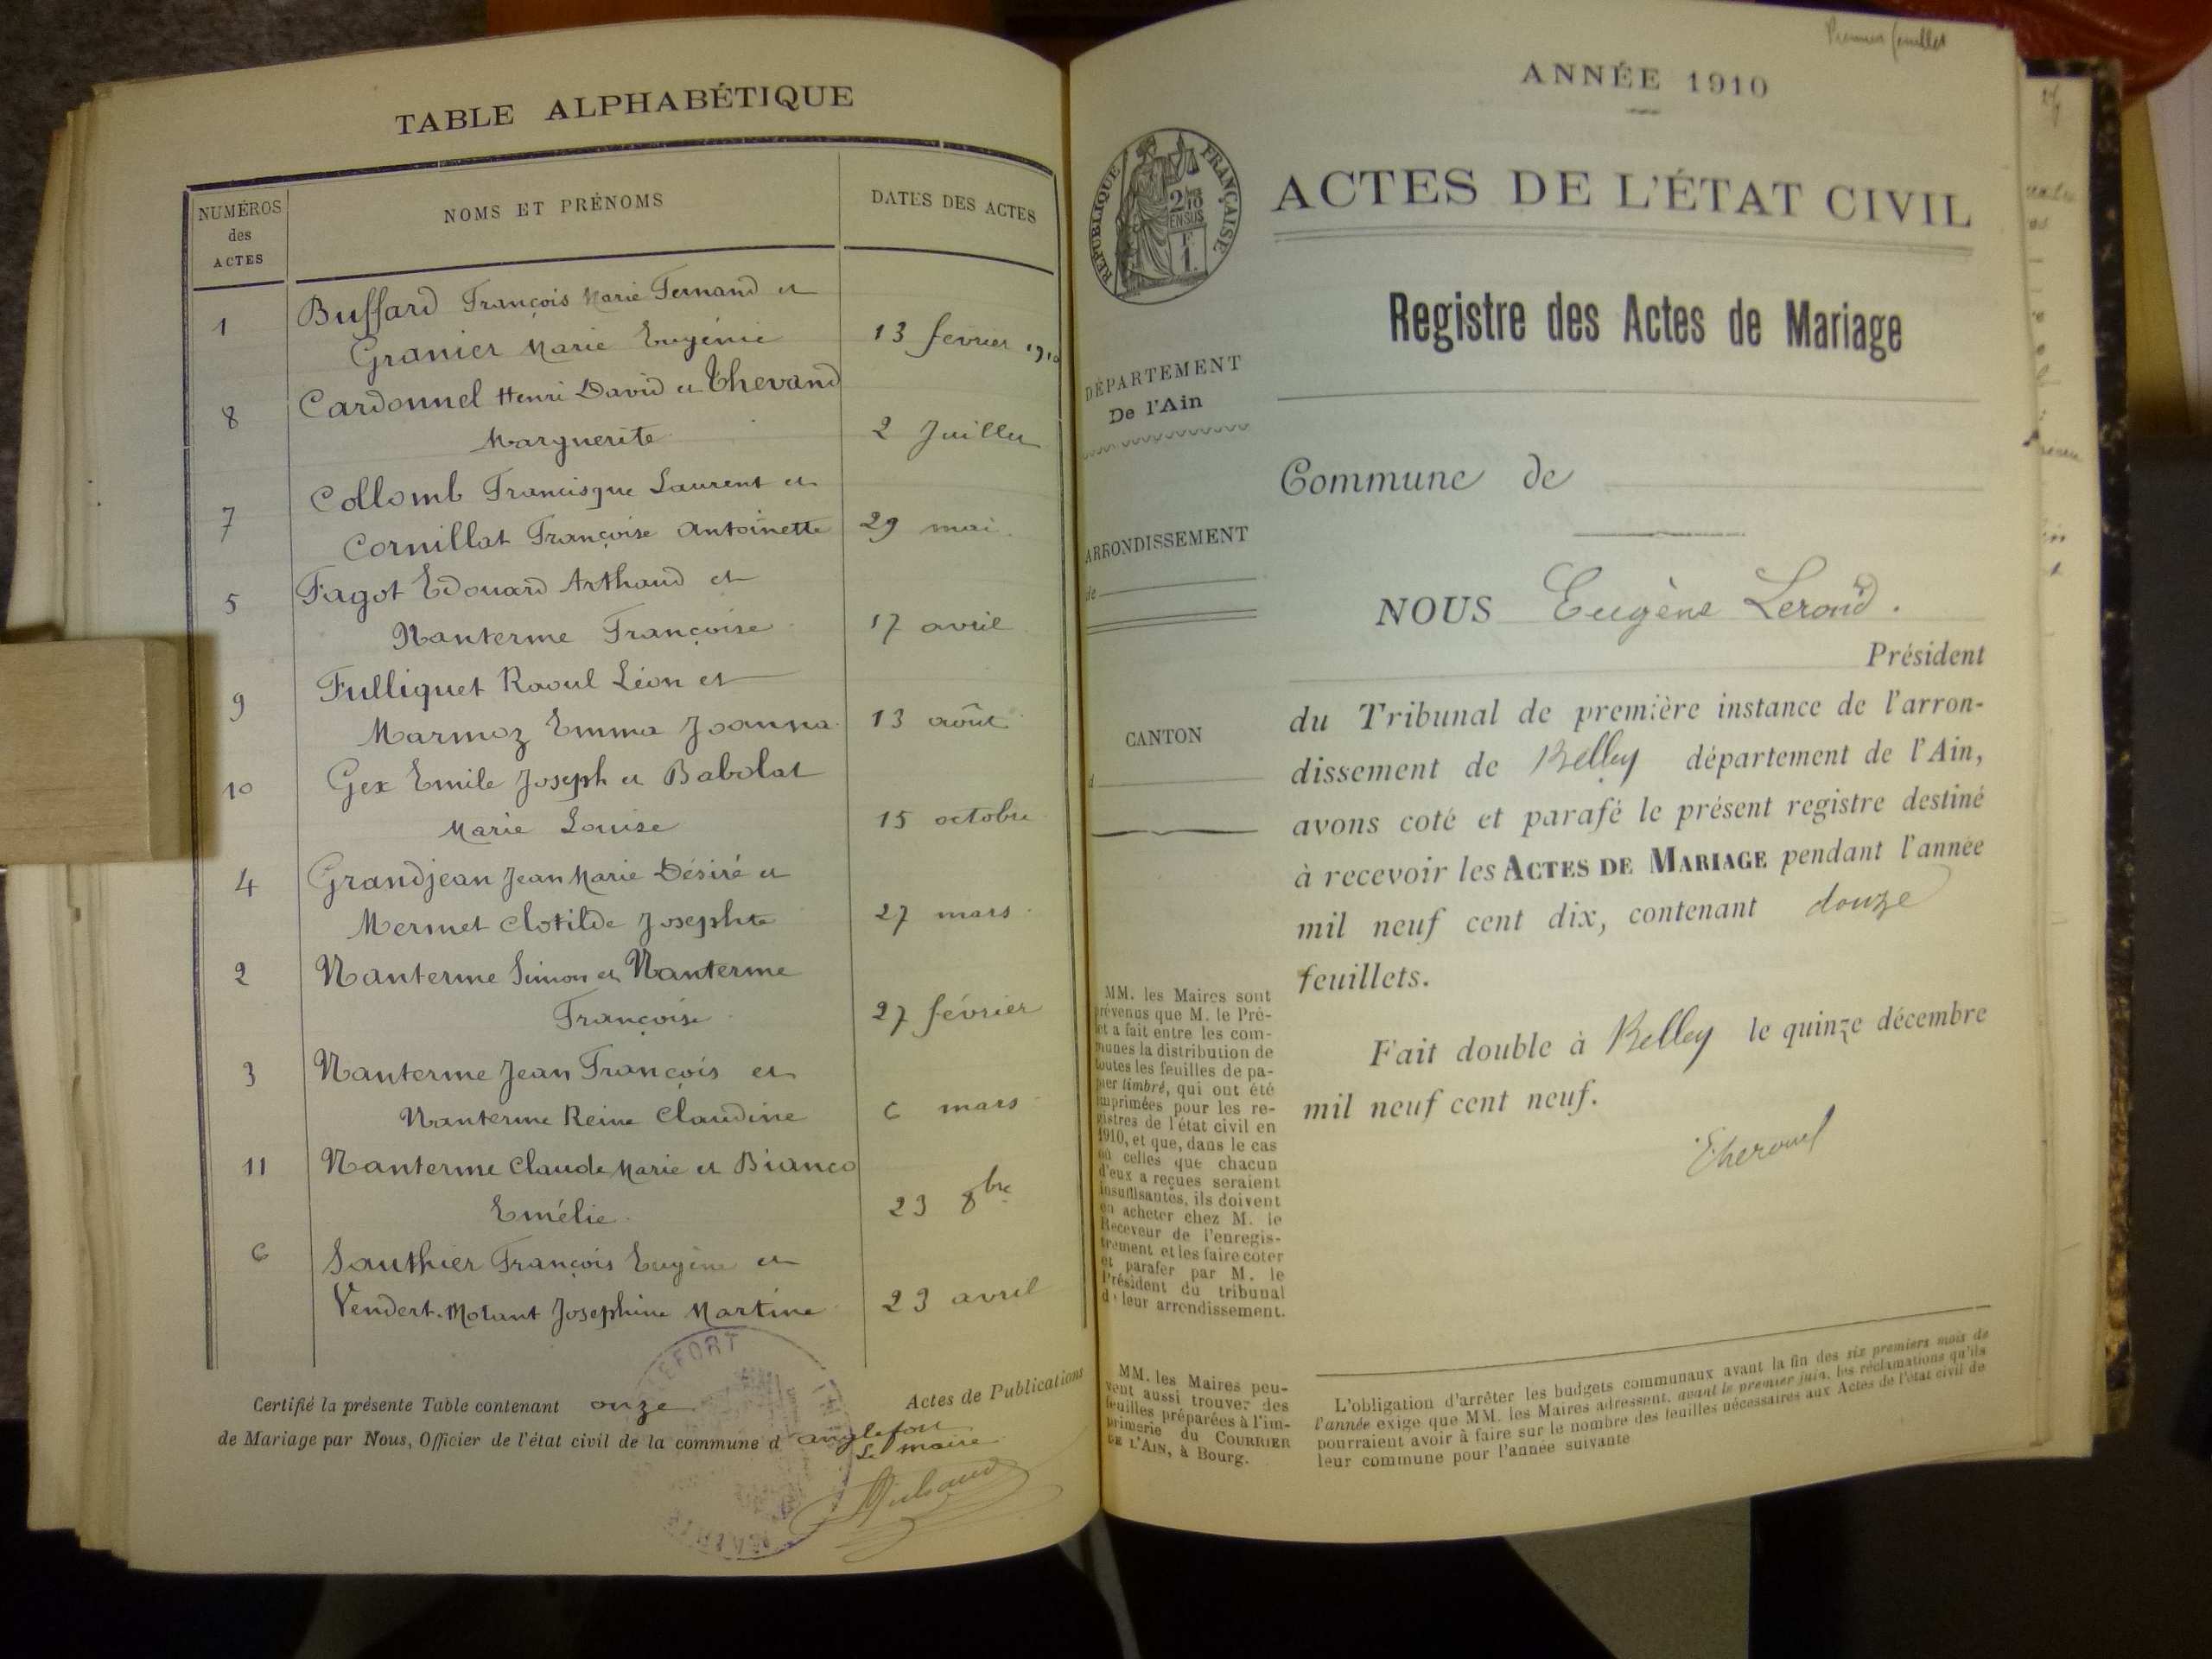 TABLE ALPHABÉTIQUE
NUMÉROS
des
ACTES
NOMS ET PRÉNOMS
DATES DES ACTES
1 Buffard François Marie Fernand et
Granier Marie Eugénie 13 fevrier 1910
8 Cardonnel Henri David et Thevand
Marguerite 2 Juillet
7 Collomb Francisque Laurent et
Cornillat Françoise Antoinette 29 mai.
5 Fagot Edouard Arthaud et
Nanterme Françoise 17 avril
9 Fulliquet Raoul Léon et
Marmoz Emma Joanna 13 août
10 Gex Emile Joseph et Babolat
Marie Louise 15 octobre
4 Grandjean Jean Marie Désiré et
Mermet Clotilde Josephte 27 mars
2 Nanterme Simon et Nanterme
Françoise 27 février
3 Nanterme Jean François et
Nanterme Reine Claudine 6 mars
11 Nanterme Claude Marie et Bianco
Emélie 23 8bre
6 Sauthier François Eugène et
Vendert-Molant Josephine Martine 23 avril
Certifié la présente Table contenant onze Actes de Publications
de Mariage par Nous, Officier de l'état civil de la commune d'anglefort
Le maire
MAIRIE
Premier feuillet
ANNÉE 1910
RÉPUBLIQUE FRANÇAISE
2/10
EN SUS
F
1.
ACTES DE L'ÉTAT CIVIL
Registre des Actes de Mariage
DÉPARTEMENT
De l'Ain
Commune de
ARRONDISSEMENT
de
CANTON
d
NOUS Eugène Lerond.
Président
du Tribunal de première instance de l'arron-
dissement de Belley département de l'Ain,
avons coté et parafé le présent registre destiné
à recevoir les ACTES DE MARIAGE pendant l'année
mil neuf cent dix, contenant douze
feuillets.
Fait double à Belley le quinze décembre
mil neuf cent neuf.
MM. les Maires sont
prévenus que M. le Pré-
fet a fait entre les com-
munes la distribution de
toutes les feuilles de pa-
pier timbré, qui ont été
imprimées pour les re-
gistres de l'état civil en
1910, et que, dans le cas
où celles que chacun
d'eux a reçues seraient
insuffisantes, ils doivent
en acheter chez M. le
Receveur de l'enregis-
trement et les faire coter
et parafer par M. le
Président du tribunal
de leur arrondissement.
MM. les Maires peu-
vent aussi trouver des
feuilles préparées à l'im-
primerie du COURRIER
DE L'AIN, à Bourg.
L'obligation d'arrêter les budgets communaux avant la fin des six premiers mois de
l'année exige que MM. les Maires adressent, avant le premier juin, les réclamations qu'ils
pourraient avoir à faire sur le nombre des feuilles nécessaires aux Actes de l'état civil de
leur commune pour l'année suivante